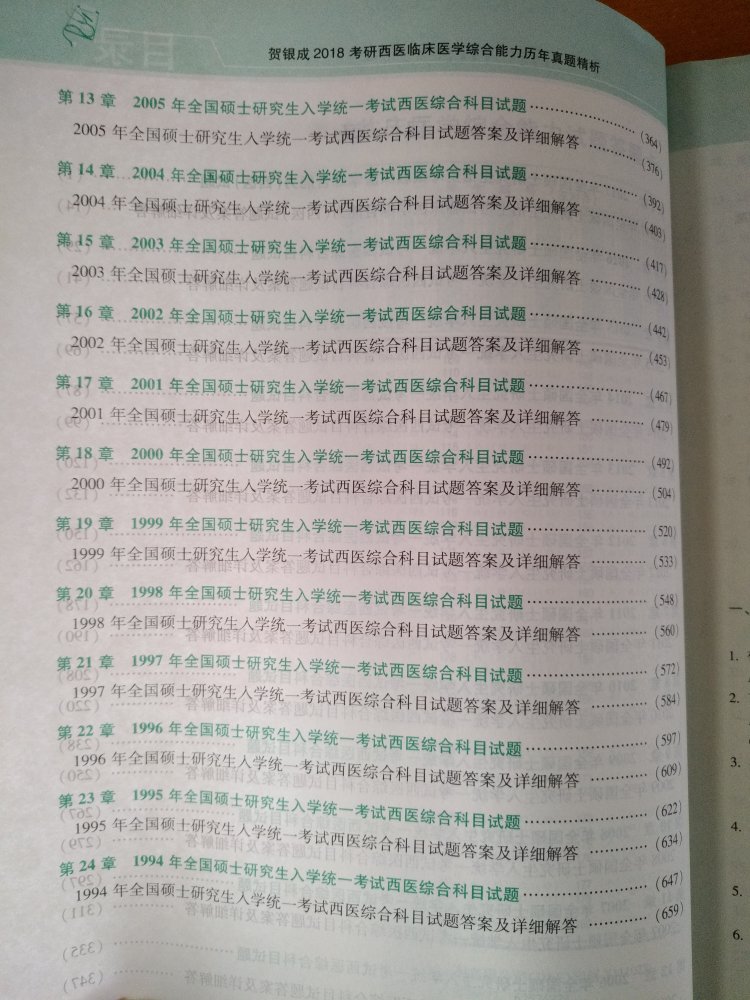 目录
贺银成2018考研西医临床医学综合能力历年真题精析
第13章 2005年全国硕士研究生入学统一考试西医综合科目试题……………(364)
2005年全国硕士研究生入学统一考试西医综合科目试题答案及详细解答…………(376)
第14章 2004年全国硕士研究生入学统一考试西医综合科目试题……………(392)
2004年全国硕士研究生入学统一考试西医综合科目试题答案及详细解答…………(403)
第15章 2003年全国硕士研究生入学统一考试西医综合科目试题……………(417)
2003年全国硕士研究生入学统一考试西医综合科目试题答案及详细解答…………(428)
第16章 2002年全国硕士研究生入学统一考试西医综合科目试题……………(442)
2002年全国硕士研究生入学统一考试西医综合科目试题答案及详细解答…………(453)
第17章 2001年全国硕士研究生入学统一考试西医综合科目试题……………(467)
2001年全国硕士研究生入学统一考试西医综合科目试题答案及详细解答…………(479)
第18章 2000年全国硕士研究生入学统一考试西医综合科目试题……………(492)
2000年全国硕士研究生入学统一考试西医综合科目试题答案及详细解答…………(504)
第19章 1999年全国硕士研究生入学统一考试西医综合科目试题……………(520)
1999年全国硕士研究生入学统一考试西医综合科目试题答案及详细解答…………(533)
第20章 1998年全国硕士研究生入学统一考试西医综合科目试题……………(548)
1998年全国硕士研究生入学统一考试西医综合科目试题答案及详细解答…………(560)
第21章 1997年全国硕士研究生入学统一考试西医综合科目试题……………(572)
1997年全国硕士研究生入学统一考试西医综合科目试题答案及详细解答…………(584)
第22章 1996年全国硕士研究生入学统一考试西医综合科目试题……………(597)
1996年全国硕士研究生入学统一考试西医综合科目试题答案及详细解答…………(609)
第23章 1995年全国硕士研究生入学统一考试西医综合科目试题……………(622)
1995年全国硕士研究生入学统一考试西医综合科目试题答案及详细解答…………(634)
第24章 1994年全国硕士研究生入学统一考试西医综合科目试题……………(647)
1994年全国硕士研究生入学统一考试西医综合科目试题答案及详细解答…………(659)
一、
1.
2.
3.
4.
5.
6.